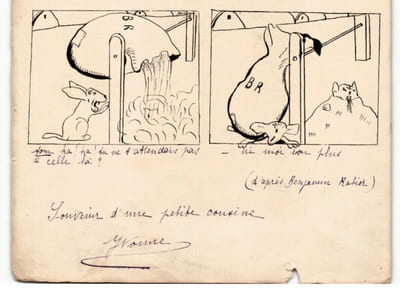 BR
BR
hom ha! ha! tu ne t'attendais pas
à celle là ?
— ni moi non plus
(d'après Benjamin Rabier)
Souvenir d'une petite cousine
Yvonne